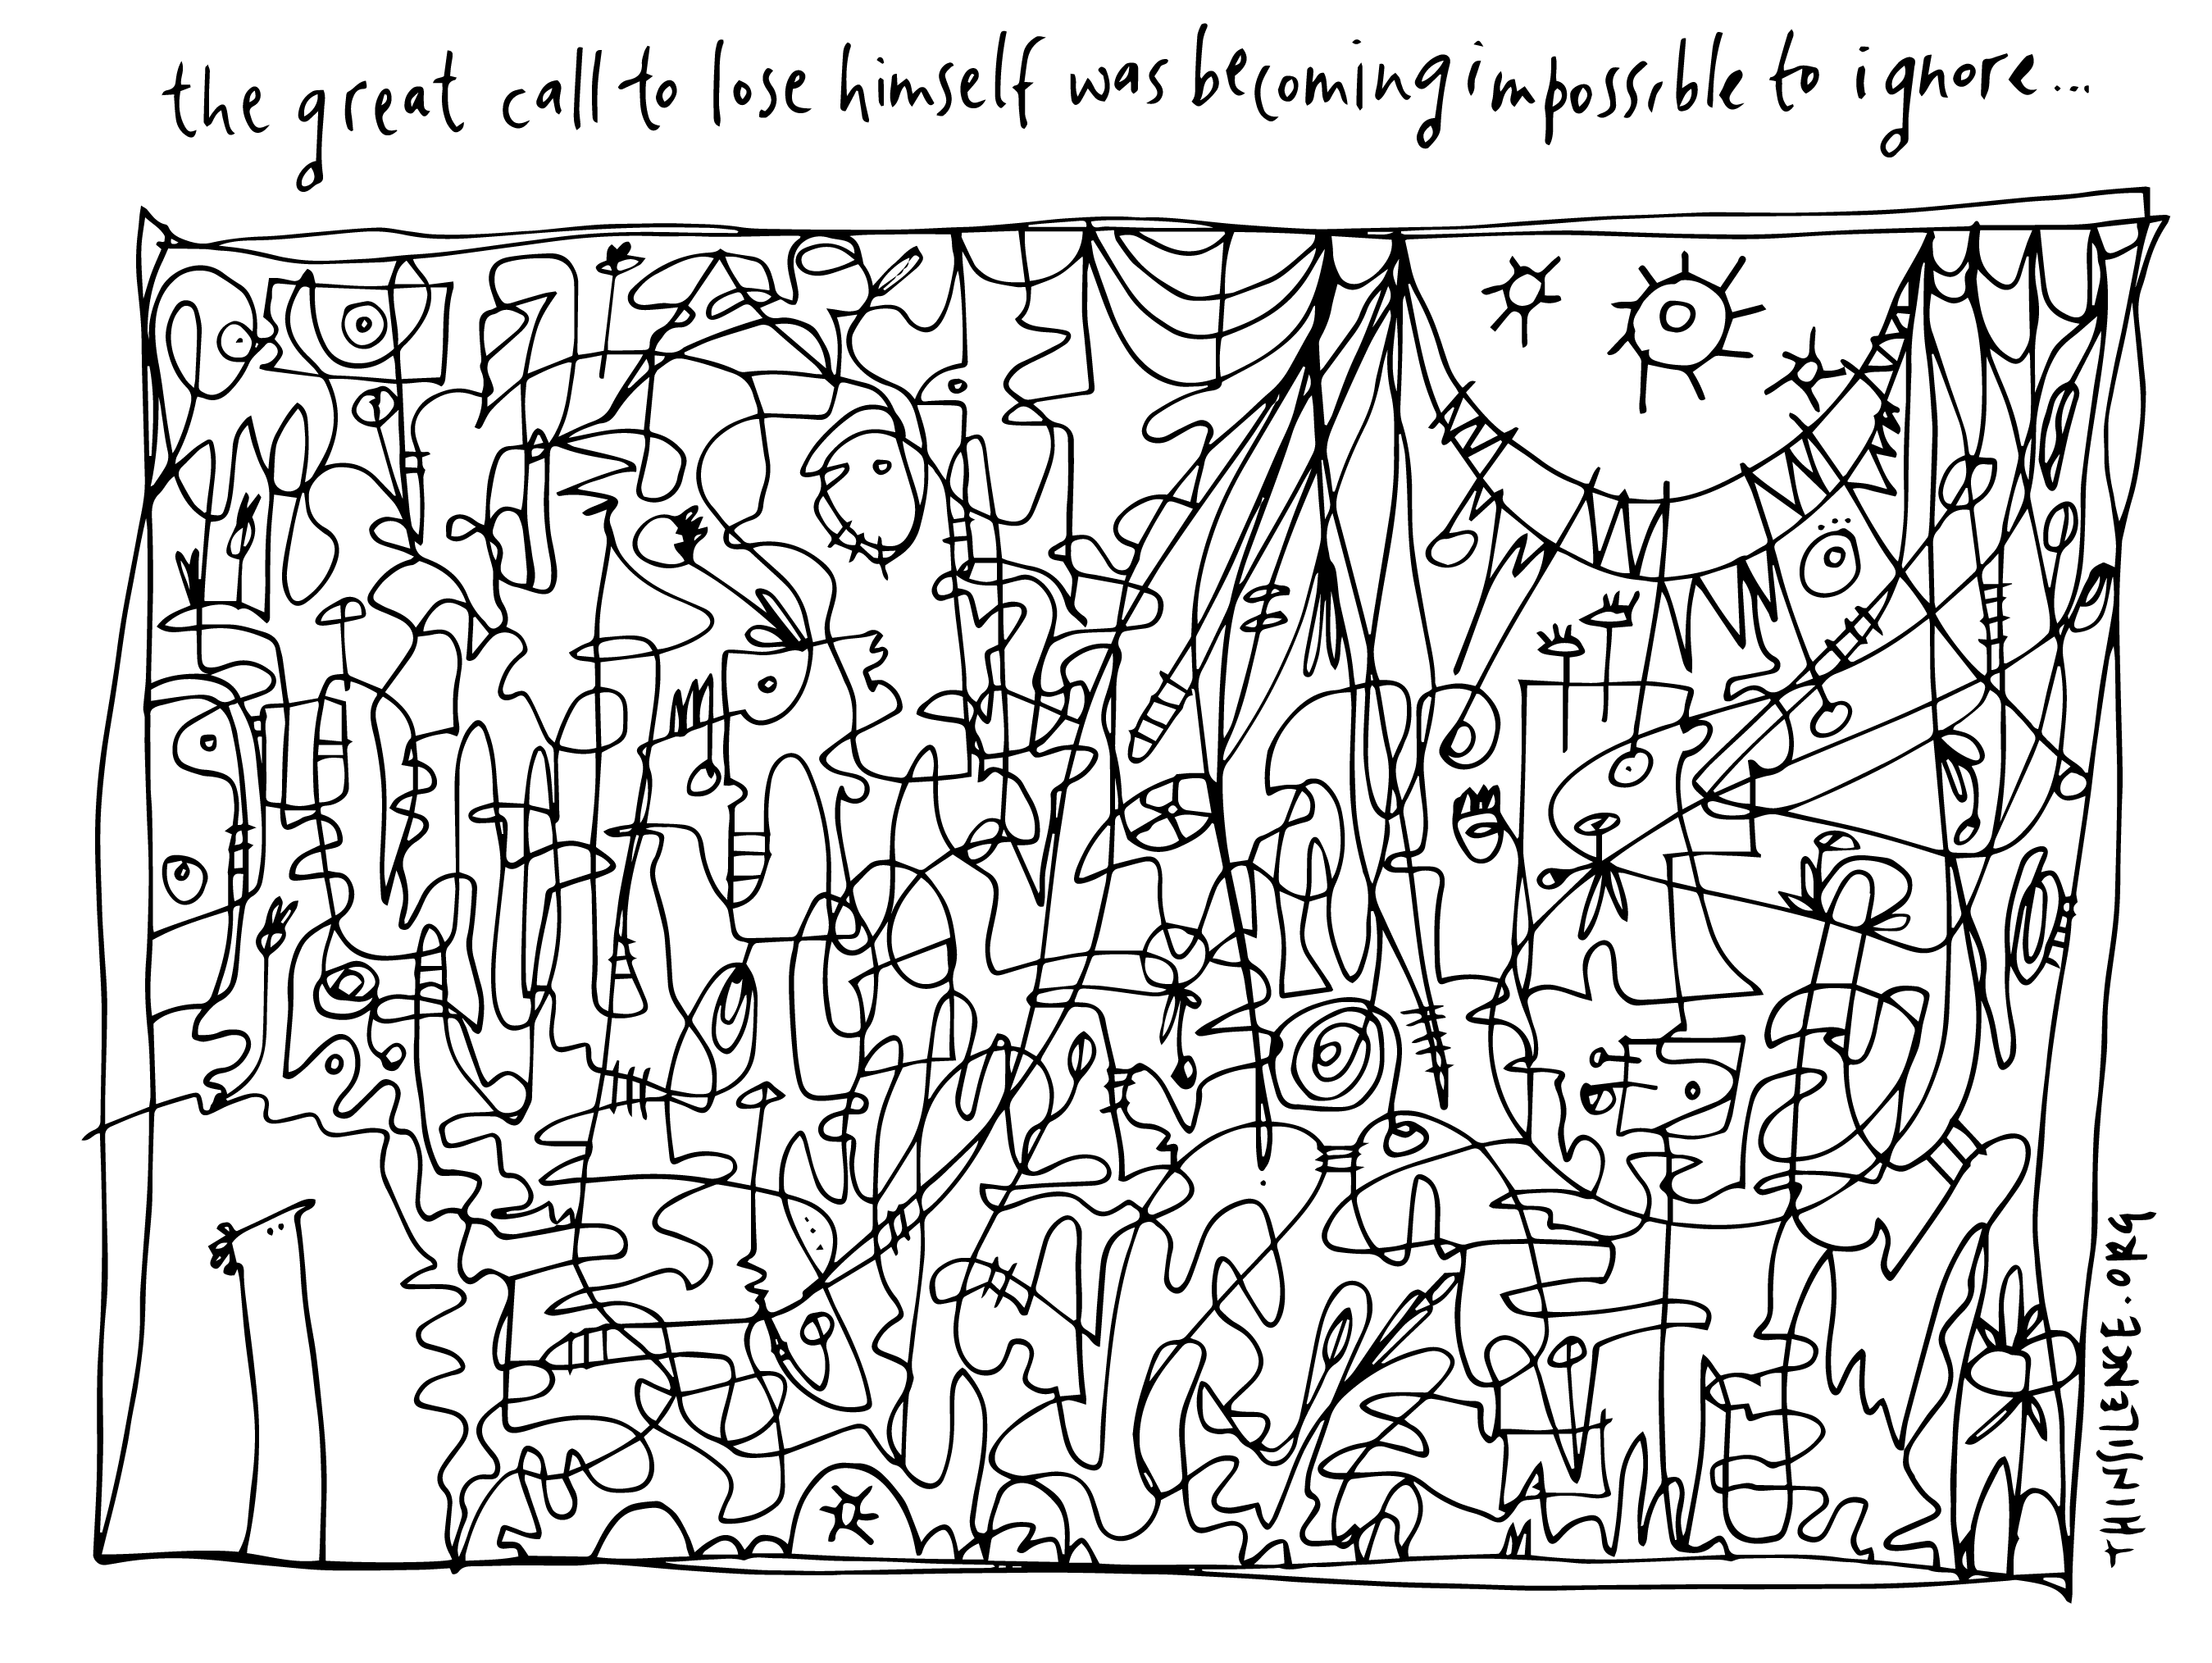 the great call to lose himself was becoming impossible to ignore...
THIMLENKE.ORG